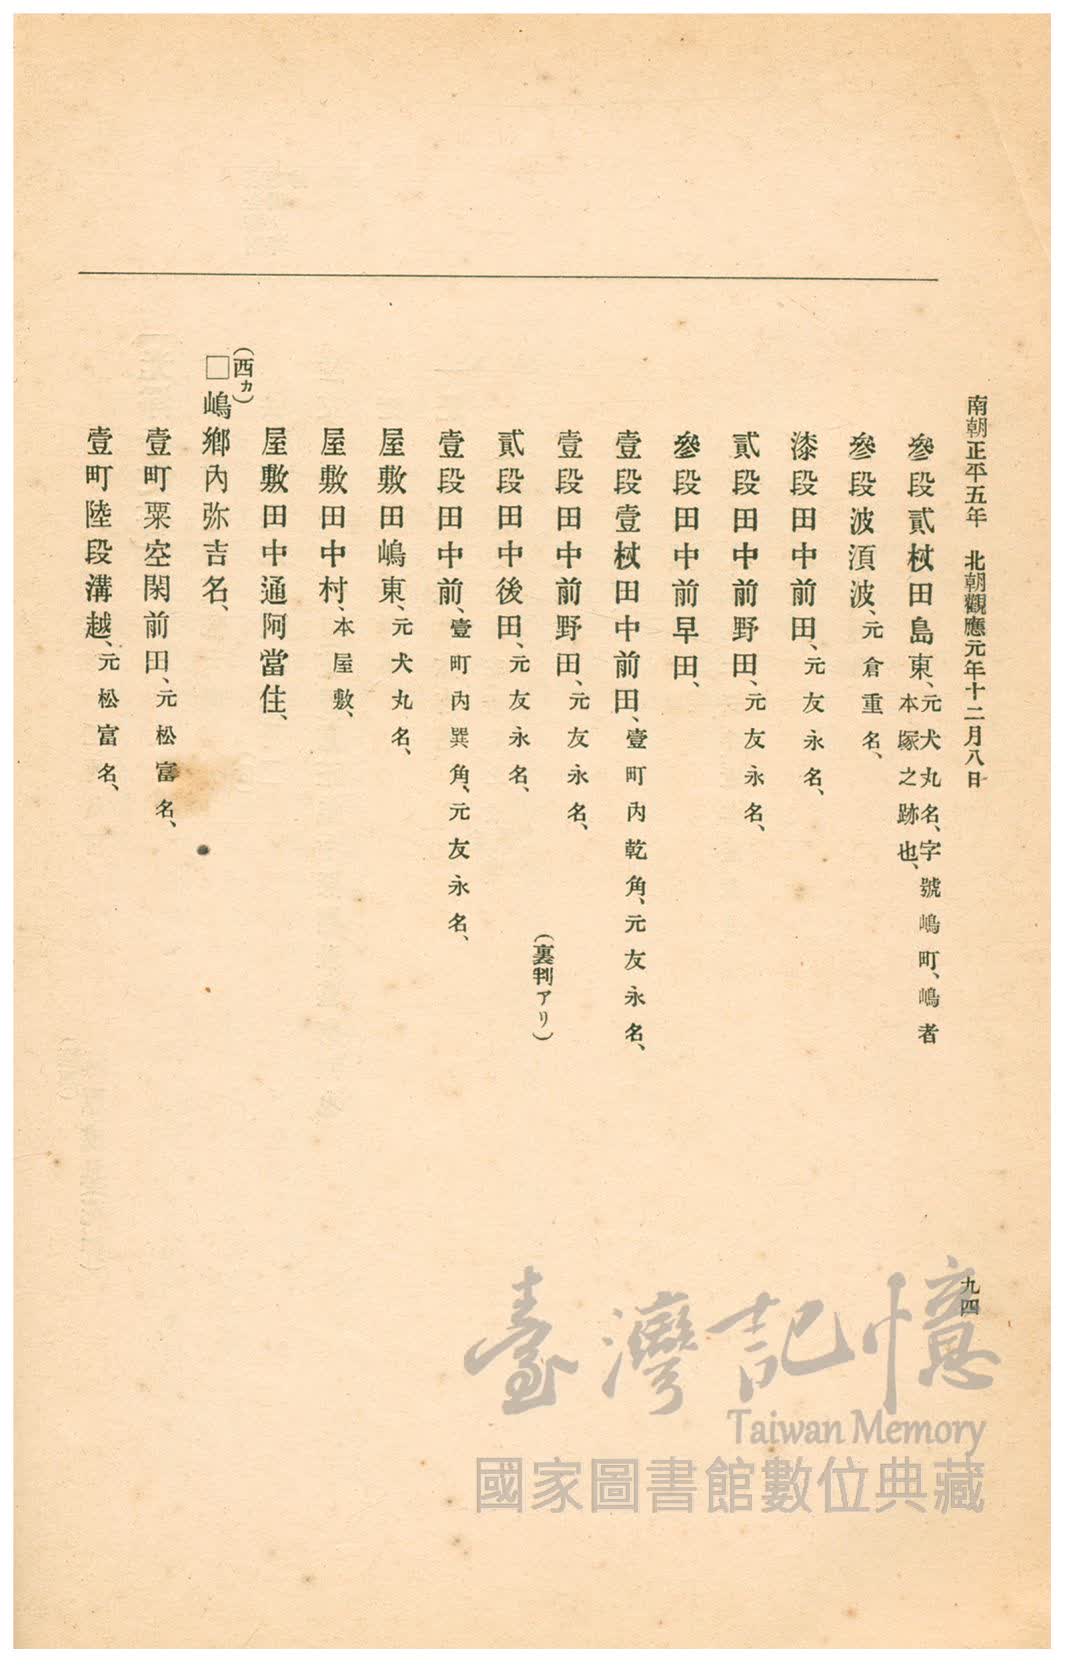 南朝正平五年　北朝觀應元年十二月八日
九四
參段貳杖田島東、元犬丸名、字號嶋町、嶋者
本塚之跡也、
參段波須波、元倉重名、
漆段田中前田、元友永名、
貳段田中前野田、元友永名、
參段田中前早田、
壹段壹杖田中前田、壹町内乾角、元友永名、
壹段田中前野田、元友永名、
(裏判アリ)
貳段田中後田、元友永名、
壹段田中前、壹町内巽角、元友永名、
屋敷田嶋東、元犬丸名、
屋敷田中村、本屋敷、
屋敷田中通阿當住、
(西カ)
□嶋鄉内弥吉名、
壹町粟空閑前田、元松富名、
壹町陸段溝越、元松富名、
臺灣記憶
Taiwan Memory
國家圖書館數位典藏